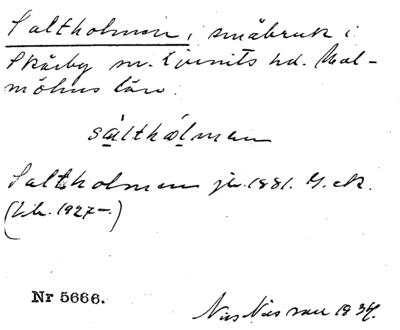 Saltholmen, småbruk i
Skårby sn. Ljunits hd. Mal-
möhus län.
sálthólmen
Saltholmen jr. 1881. G. ek.
(Lbr. 1927-.)
Nr 5666.
Nils Nilsson 1934.